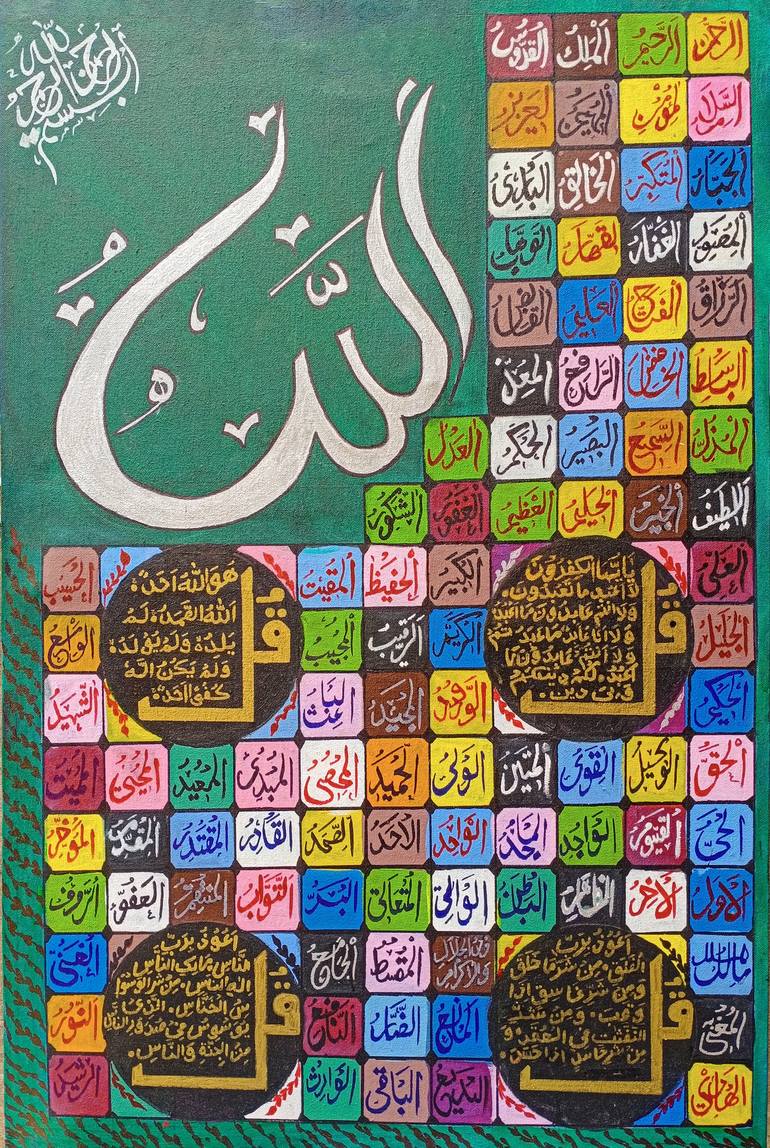 بسم الله الرحمن الرحيم
الله
الرحمن الرحيم الملك القدوس
السلام المؤمن المهيمن العزيز
الجبار المتكبر الخالق البارئ
المصور الغفار القهار الوهاب
الرزاق الفتاح العليم القابض
الباسط الخافض الرافع المعز
المذل السميع البصير الحكم العدل
اللطيف الخبير الحليم العظيم الغفور الشكور
العلي الكبير الحفيظ المقيت الحسيب
الجليل الكريم الرقيب المجيب الواسع
الحكيم الودود المجيد الباعث الشهيد
الحق الوكيل القوي المتين الولي الحميد المحصي المبدئ المعيد المحيي المميت
الحي القيوم الواجد الماجد الواحد الاحد الصمد القادر المقتدر المقدم المؤخر
الاول الاخر الظاهر الباطن الوالي المتعالي البر التواب المنتقم العفو الرءوف
مالك الملك ذوالجلال والاكرام المقسط الجامع الغني
المغني المانع الضار النافع النور
الهادي البديع الباقي الوارث الرشيد
قل
يايها الكفرون
لا اعبد ما تعبدون
ولا انتم عابدون ما اعبد
ولا انا عابد ما عبدتم
قل
هو الله احد
الله الصمد لم
يلد ولم يولد
ولم يكن له
كفوا احد
قل
اعوذ برب
الفلق من شر ما خلق
قل
اعوذ برب
الناس ملك الناس
اله الناس من شر الوسواس
الخناس الذي
يوسوس في صدور الناس
من الجنة والناس